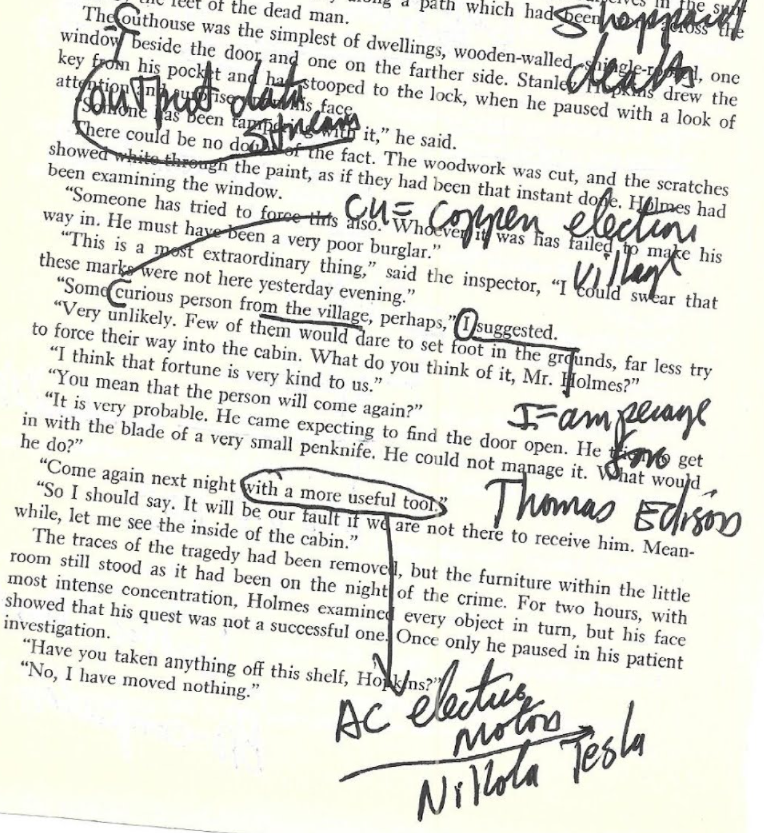 feet of the dead man.
a path which had been across the
The outhouse was the simplest of dwellings, wooden-walled, shingle-roofed, one
window beside the door and one on the farther side. Stanley Hopkins drew the
key from his pocket and had stooped to the lock, when he paused with a look of
attention and surprise his face.
deaths
output data
stream
"Someone has been tampering with it," he said.
There could be no doubt of the fact. The woodwork was cut, and the scratches
showed white through the paint, as if they had been that instant done. Holmes had
been examining the window.
CU= Copper
village
"Someone has tried to force this also. Whoever it was has failed to make his
way in. He must have been a very poor burglar."
"This is a most extraordinary thing," said the inspector, "I could swear that
these marks were not here yesterday evening."
"Some curious person from the village, perhaps," I suggested.
"Very unlikely. Few of them would dare to set foot in the grounds, far less try
to force their way into the cabin. What do you think of it, Mr. Holmes?"
"I think that fortune is very kind to us."
"You mean that the person will come again?"
"It is very probable. He came expecting to find the door open. He tried to get
in with the blade of a very small penknife. He could not manage it. What would
he do?"
I=amperage
for
Thomas Edison
"Come again next night with a more useful tool."
"So I should say. It will be our fault if we are not there to receive him. Mean-
while, let me see the inside of the cabin."
The traces of the tragedy had been removed, but the furniture within the little
room still stood as it had been on the night of the crime. For two hours, with
most intense concentration, Holmes examined every object in turn, but his face
showed that his quest was not a successful one. Once only he paused in his patient
investigation.
"Have you taken anything off this shelf, Hopkins?"
"No, I have moved nothing."
AC electric
motors
Nikola Tesla